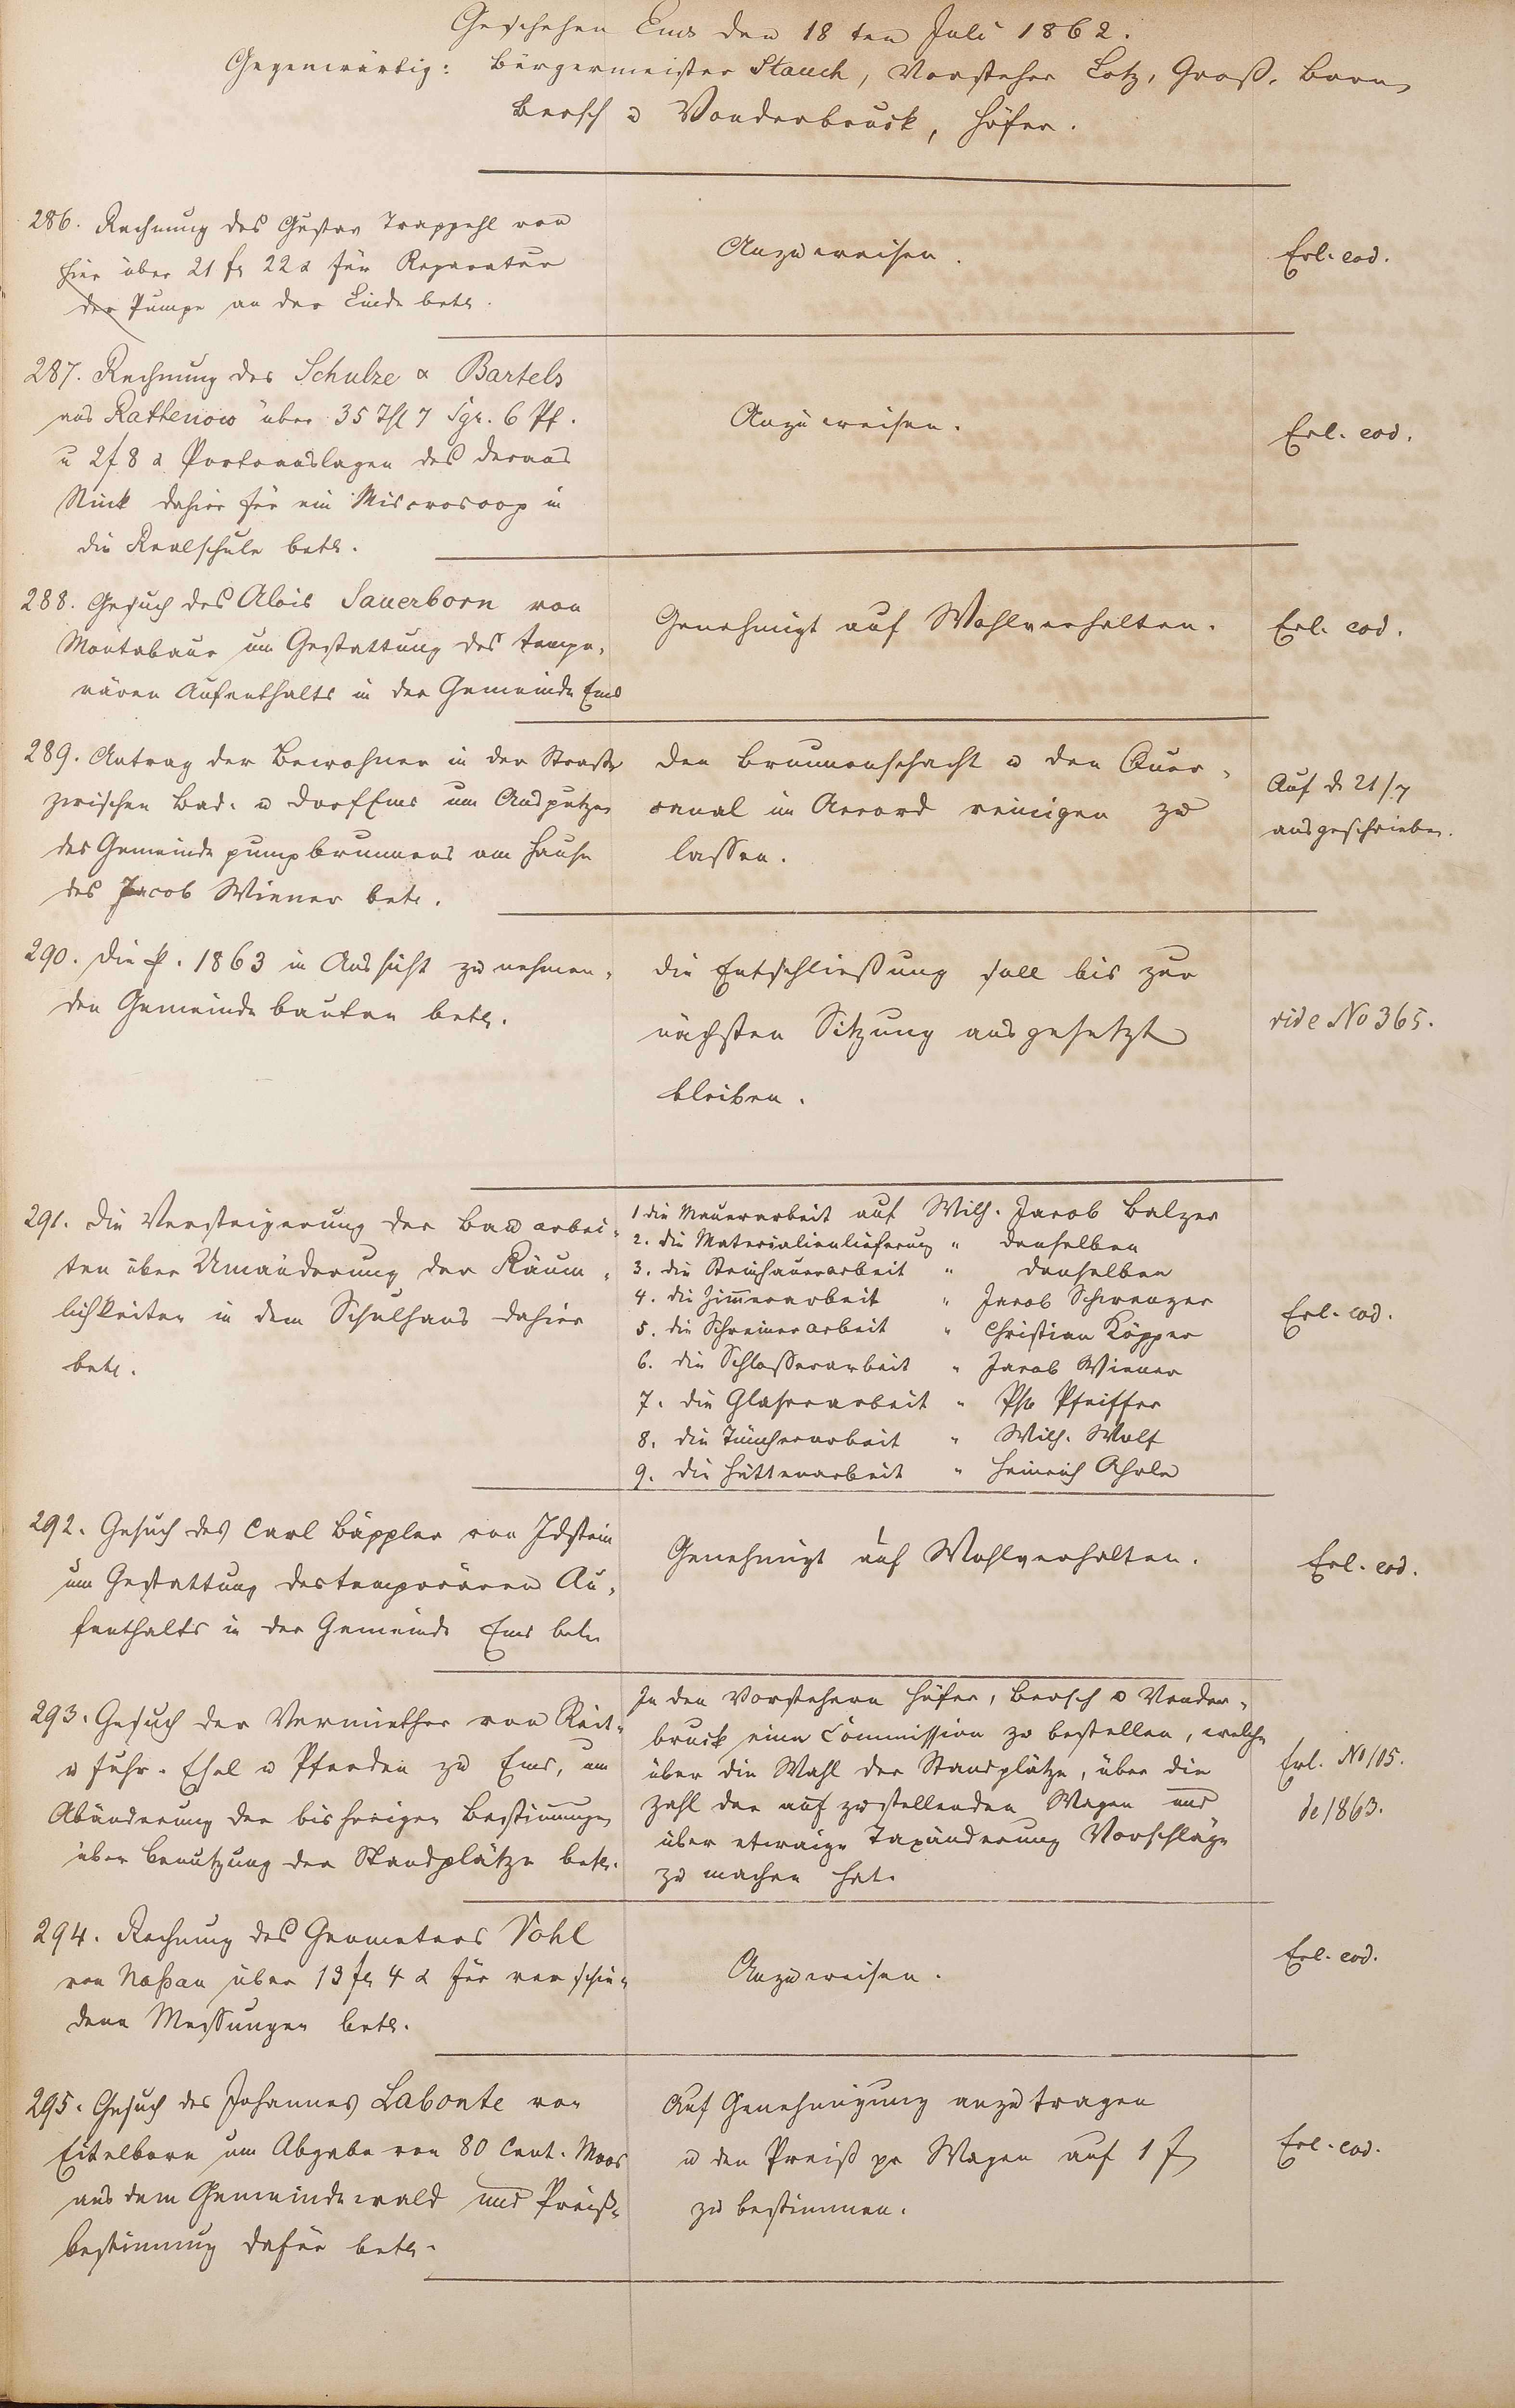 Geschehen Ems den 18 ten Juli 1862.
Gegenwärtig: Bürgermeister Stauch, Vorsteher Lotz, Groß, Born,
Bersch u Vonderbruck, Höfer.
286. Rechnung des Gustav Trappehl von
hier über 21 fl 22 x für Reparatur
der Pumpe an der Linde betr.
Anzuweisen.
Erl. eod.
287. Rechnung der Schulze & Bartels
aus Rathenow über 35 Thl 7 Sgr. 6 Pf.
u 2 f 8 x Portoauslagen des
Rink dahier für ein Microscop in
die Realschule betr.
Anzuweisen.
Erl. eod.
288. Gesuch des Alois Sauerborn von
Montabaur um Gestattung des tempo-
rären Aufenthalts in der Gemeinde Ems
Genehmigt auf Wohlverhalten.
Erl. eod.
289. Antrag der Bewohner in der Straße
zwischen Bad- u Dorf Ems um Ausputzen
des Gemeinde pumpbrunnens am Hause
des Jacob Wiener betr.
Den Brunnenschacht u den Quer-
canal im Accord reinigen zu
lassen.
Auf d. 21/7
ausgeschrieben.
290. Die p. 1863 in Aussicht zu nehmen-
den Gemeinde bauten betr.
Die Entschließung soll bis zur
nächsten Sitzung ausgesetzt
bleiben.
vide No 365.
291. Die Versteigerung der Bau arbei-
ten über Umänderung der Räum-
lichkeiten in dem Schulhaus dahier
betr.
1 die Mauerarbeit auf Wilh. Jacob Balzer
2. die Materialienlieferung " denselben
3. die Steinhauerarbeit " denselben
4. die Zimmerarbeit " Jacob Schwenzer
5. die Schreinerarbeit " Christian Köpper
6. die Schlosserarbeit " Jacob Wiener
7. die Glaserarbeit " Ph. Pfeiffer
8. die Tüncherarbeit " Wilh. Wolf
9. die Hüttenarbeit " Heinrich Ahole
Erl. eod.
292. Gesuch des Carl Bäppler von Idstein
um Gestattung des temporären Au-
fenthalts in der Gemeinde Ems betr
Genehmigt auf Wohlverhalten.
Erl. eod.
293. Gesuch der Vermiether von Reit-
u Fuhr- Esel u Pferden zu Ems, um
Abänderung der bisherigen Bestimmungen
über Benutzung der Standplätze betr.
In den Vorstehern Höfer, Bersch u Vonder-
bruck eine Commission zu bestellen, welche
über die Wahl der Standplätze, über die
Zahl der aufzustellenden Wagen und
über etwaige Taxänderung Vorschläge
zu machen hat.
Erl. No 105.
de 1863.
294. Rechnung des Geometers Vohl
von Naßau über 13 fl 4 x für verschie-
dene Messungen betr.
Anzuweisen.
Erl. eod.
295. Gesuch des Johannes Labonte von
Eitelborn um Abgabe von 80 Cent. Moos
aus dem Gemeindewald und Preiß-
bestimmung dafür betr.
Auf Genehmigung anzutragen
u den Preiß pr Wagen auf 1 f
zu bestimmen.
Erl. eod.